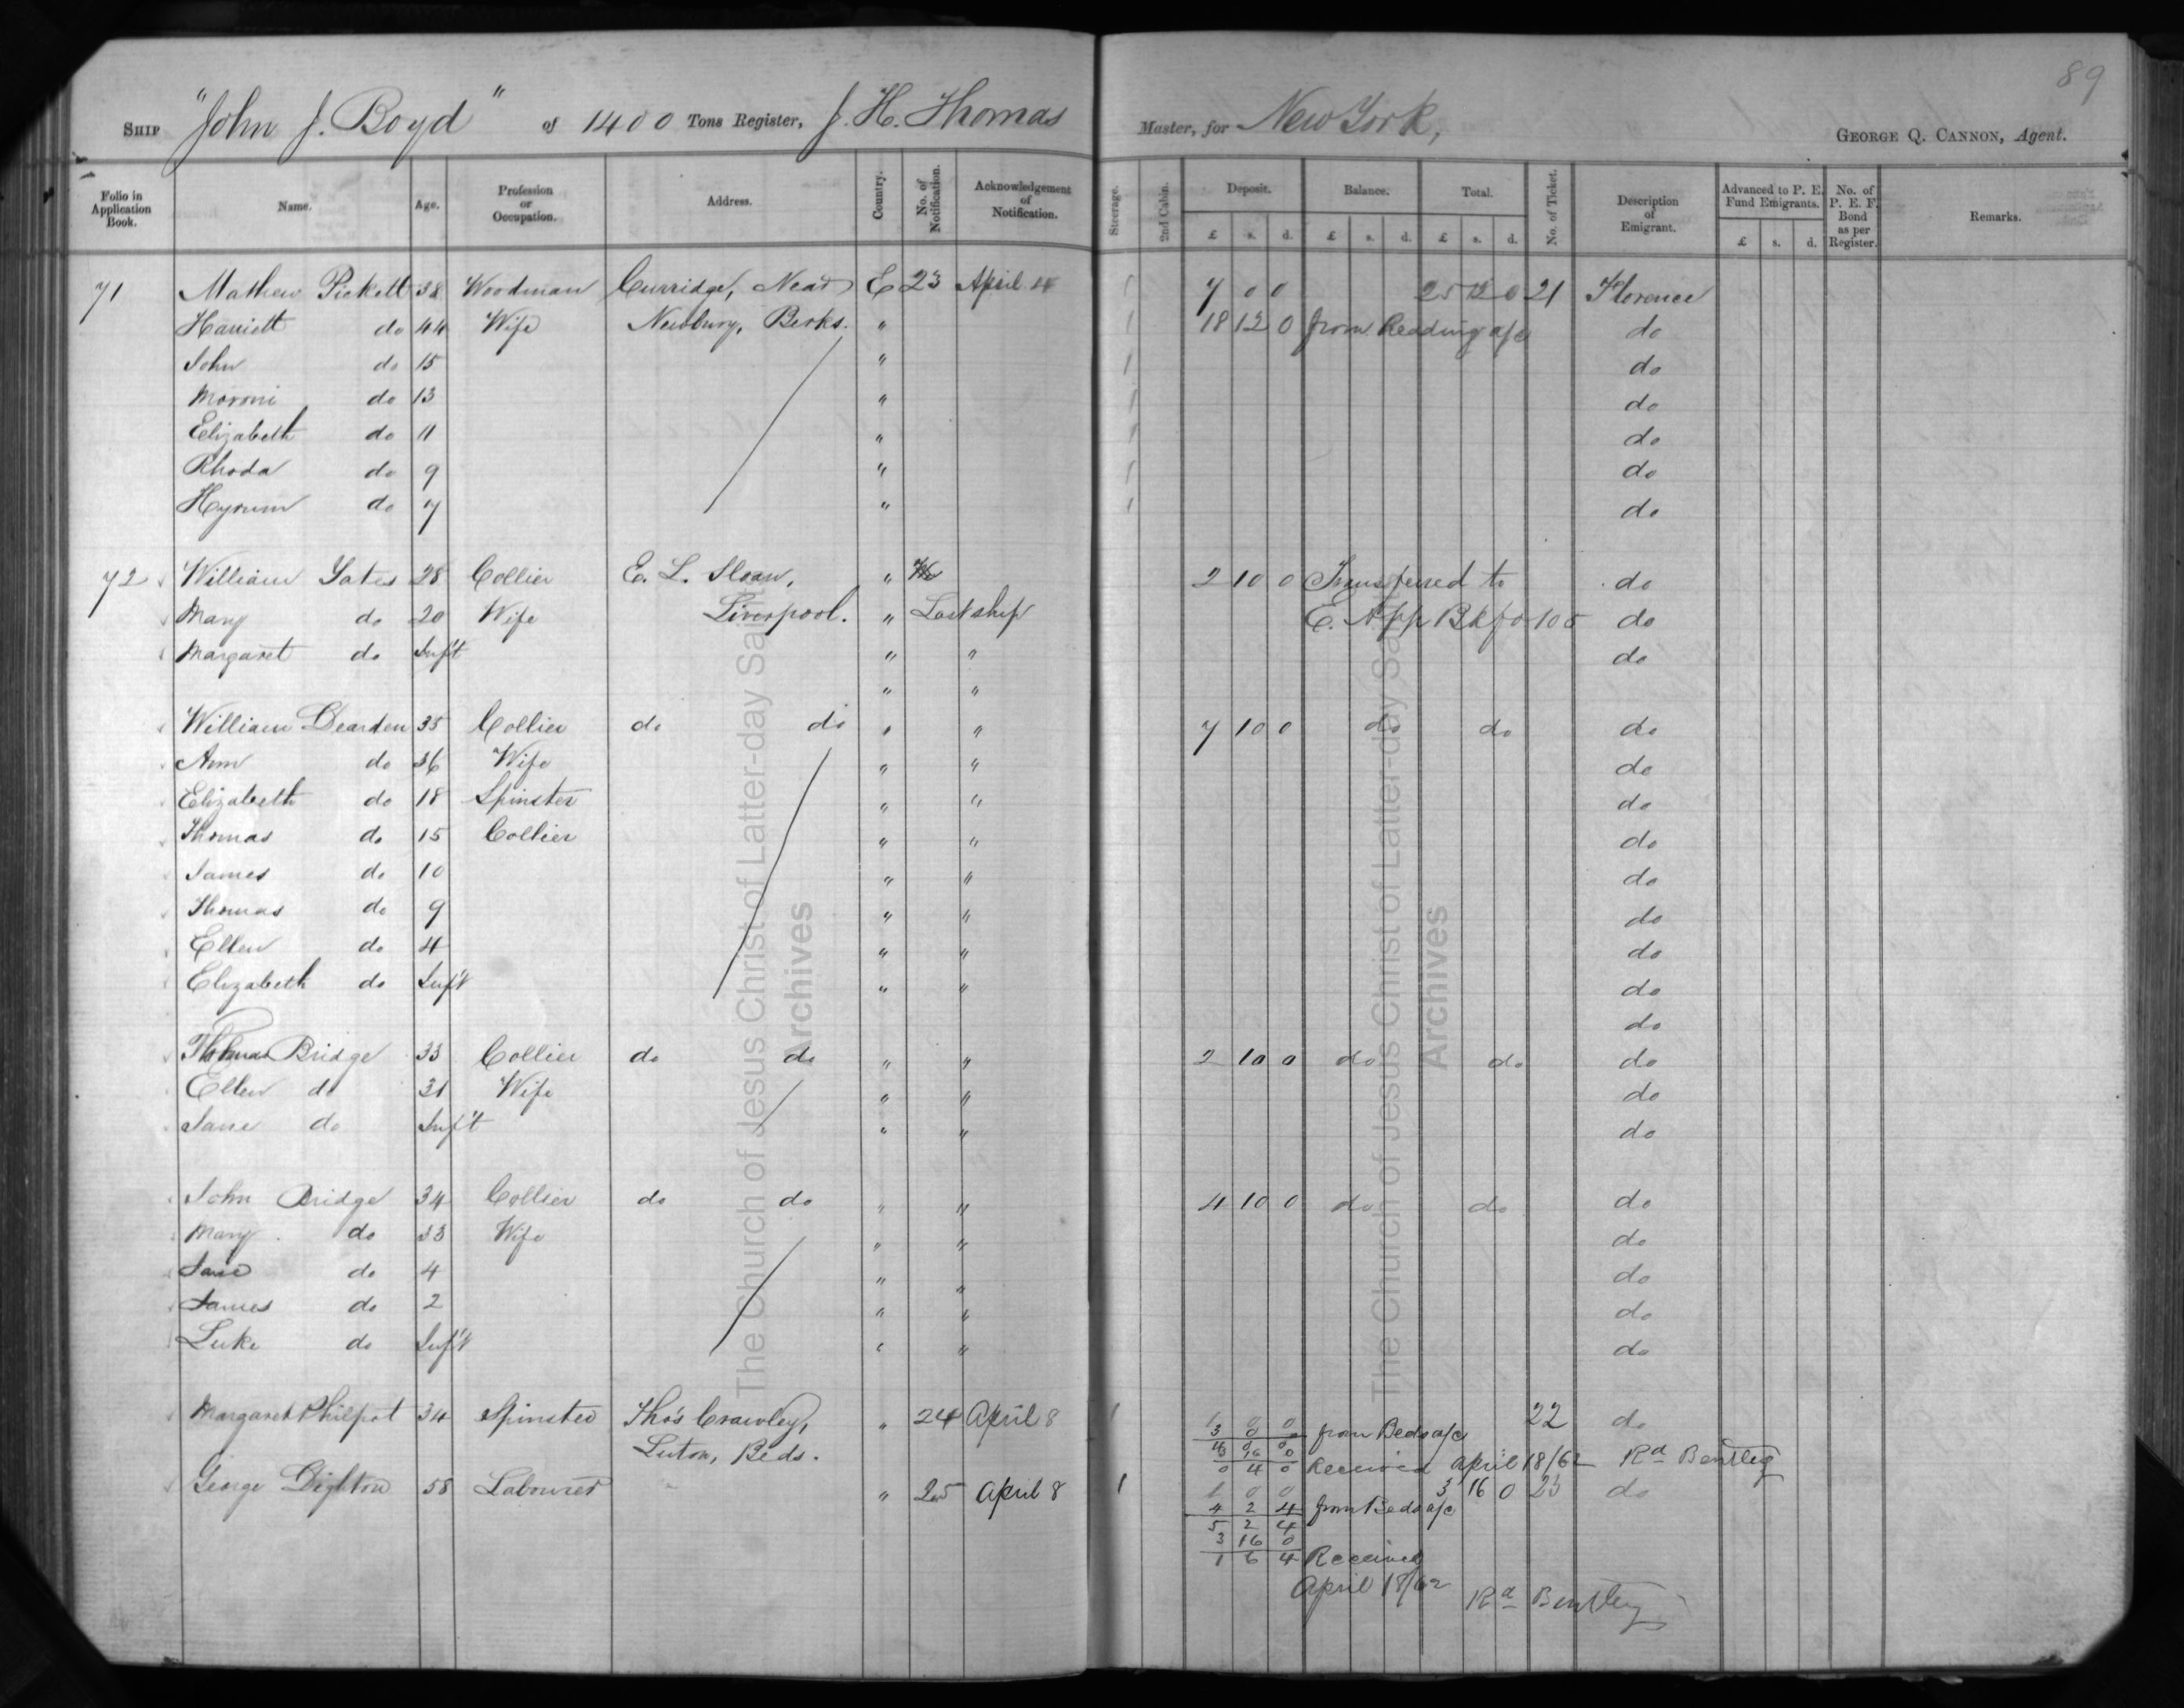 89
SHIP "John J. Boyd" of 1400 Tons Register, J. H. Thomas Master, for New York, GEORGE Q. CANNON, Agent.
Folio in Application Book. Name. Age. Profession or Occupation. Address. Country. No. of Notification. Acknowledgement of Notification. Steerage. 2nd Cabin. Deposit. Balance. Total. No. of Ticket. Description of Emigrant. Advanced to P. E. Fund Emigrants. No. of P. E. F. Bond as per Register. Remarks.
£ s. d. £ s. d. £ s. d. £ s. d.
71 Mathew Pickett 38 Woodman Curridge, Near E 23 April 4 1 7 0 0 25 12 0 21 Florence
Harriett do 44 Wife Newbury, Berks. " 1 18 12 0 from Reading a/c do
John do 15 " 1 do
Moroni do 13 " 1 do
Elizabeth do 11 " 1 do
Rhoda do 9 " 1 do
Hyrum do 7 " 1 do
72 William Yates 28 Collier E. L. Sloan, " 2 10 0 Transferred to do
Mary do 20 Wife Liverpool. " Last ship E. App Bk fo 105 do
Margaret do Inf't " " do
" "
William Dearden 35 Collier do do " " 7 10 0 do do do
Ann do 36 Wife " " do
Elizabeth do 18 Spinster " " do
Thomas do 15 Collier " " do
James do 10 " " do
Thomas do 9 " " do
Ellen do 4 " " do
Elizabeth do Inf't " " do
do
Thomas Bridge 33 Collier do do " " 2 10 0 do do do
Ellen do 31 Wife " " do
Jane do Inf't " " do
John Bridge 34 Collier do do " " 4 10 0 do do do
Mary do 33 Wife " " do
Jane do 4 " " do
James do 2 " " do
Luke do Inf't " " do
Margaret Philpot 34 Spinster Tho's Crawley, " 24 April 8 1 1 0 0 22 do
3 0 0 from Beds a/c
Luton, Beds. 4 0 0
3 16 0
0 4 0 Received April 18/62 Rd Bentley
George Dighton 58 Labourer " 25 April 8 1 1 0 0 3 16 0 23 do
4 2 4 from Beds a/c
5 2 4
3 16 0
1 6 4 Received
April 18/62 Rd Bentley
The Church of Jesus Christ of Latter-day Saints
Archives
The Church of Jesus Christ of Latter-day Saints
Archives